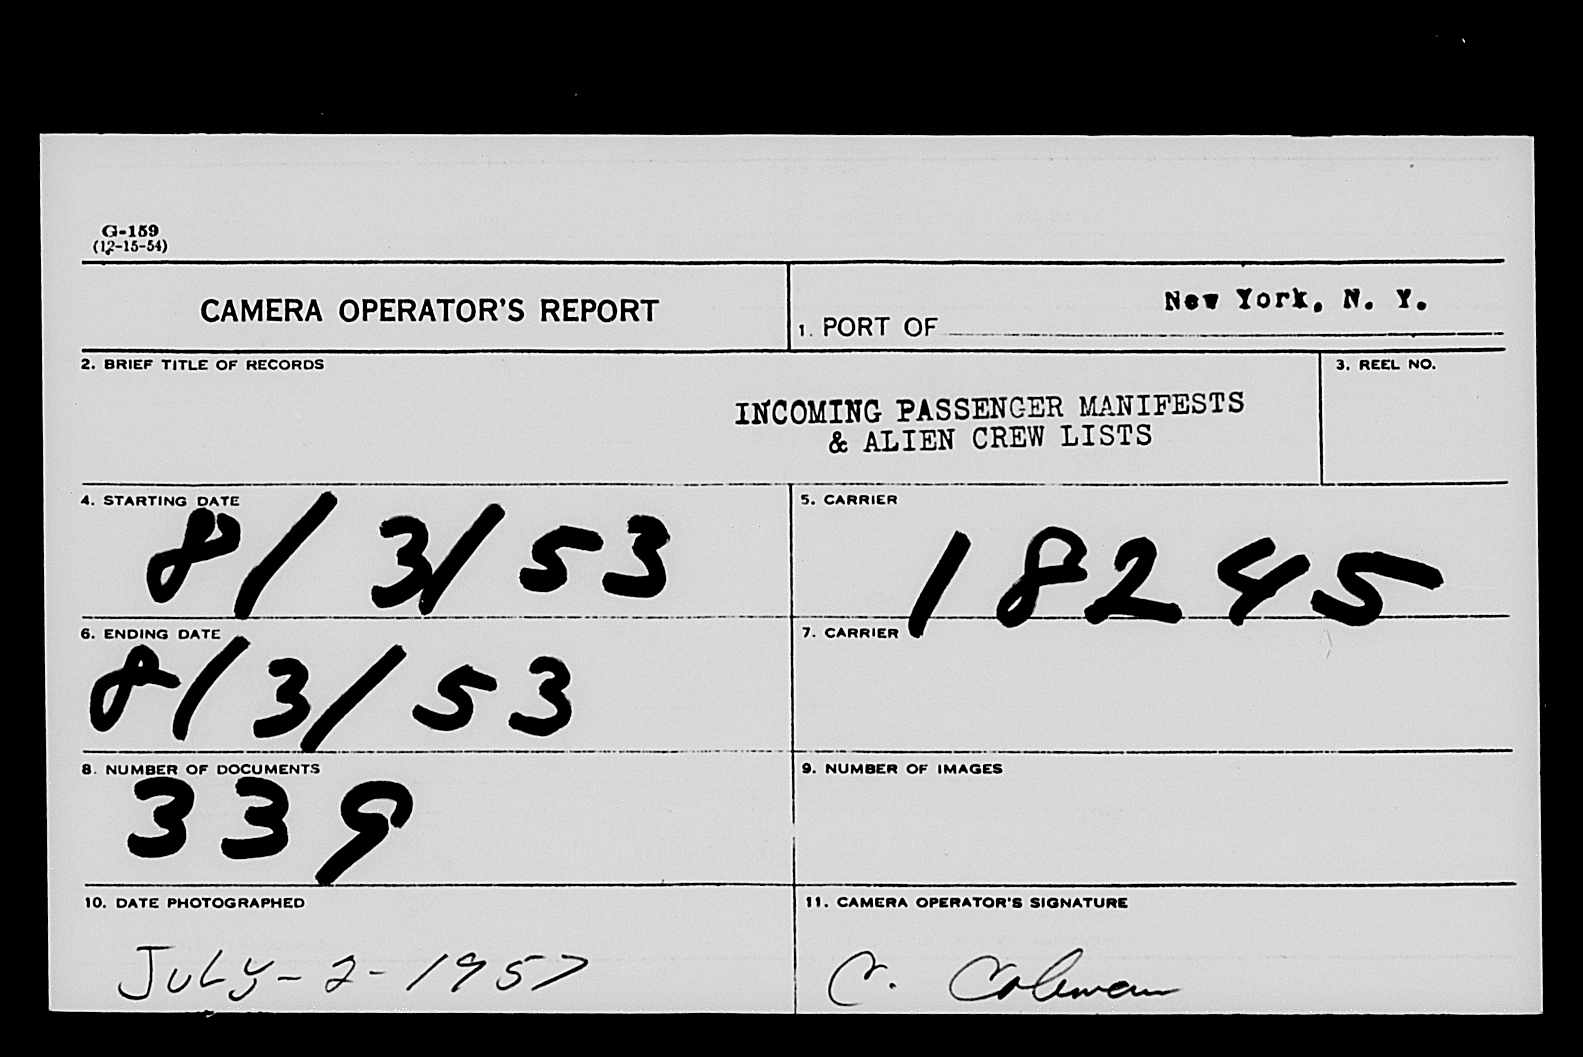 G-159
(12-15-54)
CAMERA OPERATOR'S REPORT
1. PORT OF New York, N. Y.
2. BRIEF TITLE OF RECORDS
INCOMING PASSENGER MANIFESTS
& ALIEN CREW LISTS
3. REEL NO.
4. STARTING DATE
8/3/53
5. CARRIER
18245
6. ENDING DATE
8/3/53
7. CARRIER
8. NUMBER OF DOCUMENTS
339
9. NUMBER OF IMAGES
10. DATE PHOTOGRAPHED
JULY-2-1957
11. CAMERA OPERATOR'S SIGNATURE
C. Coleman